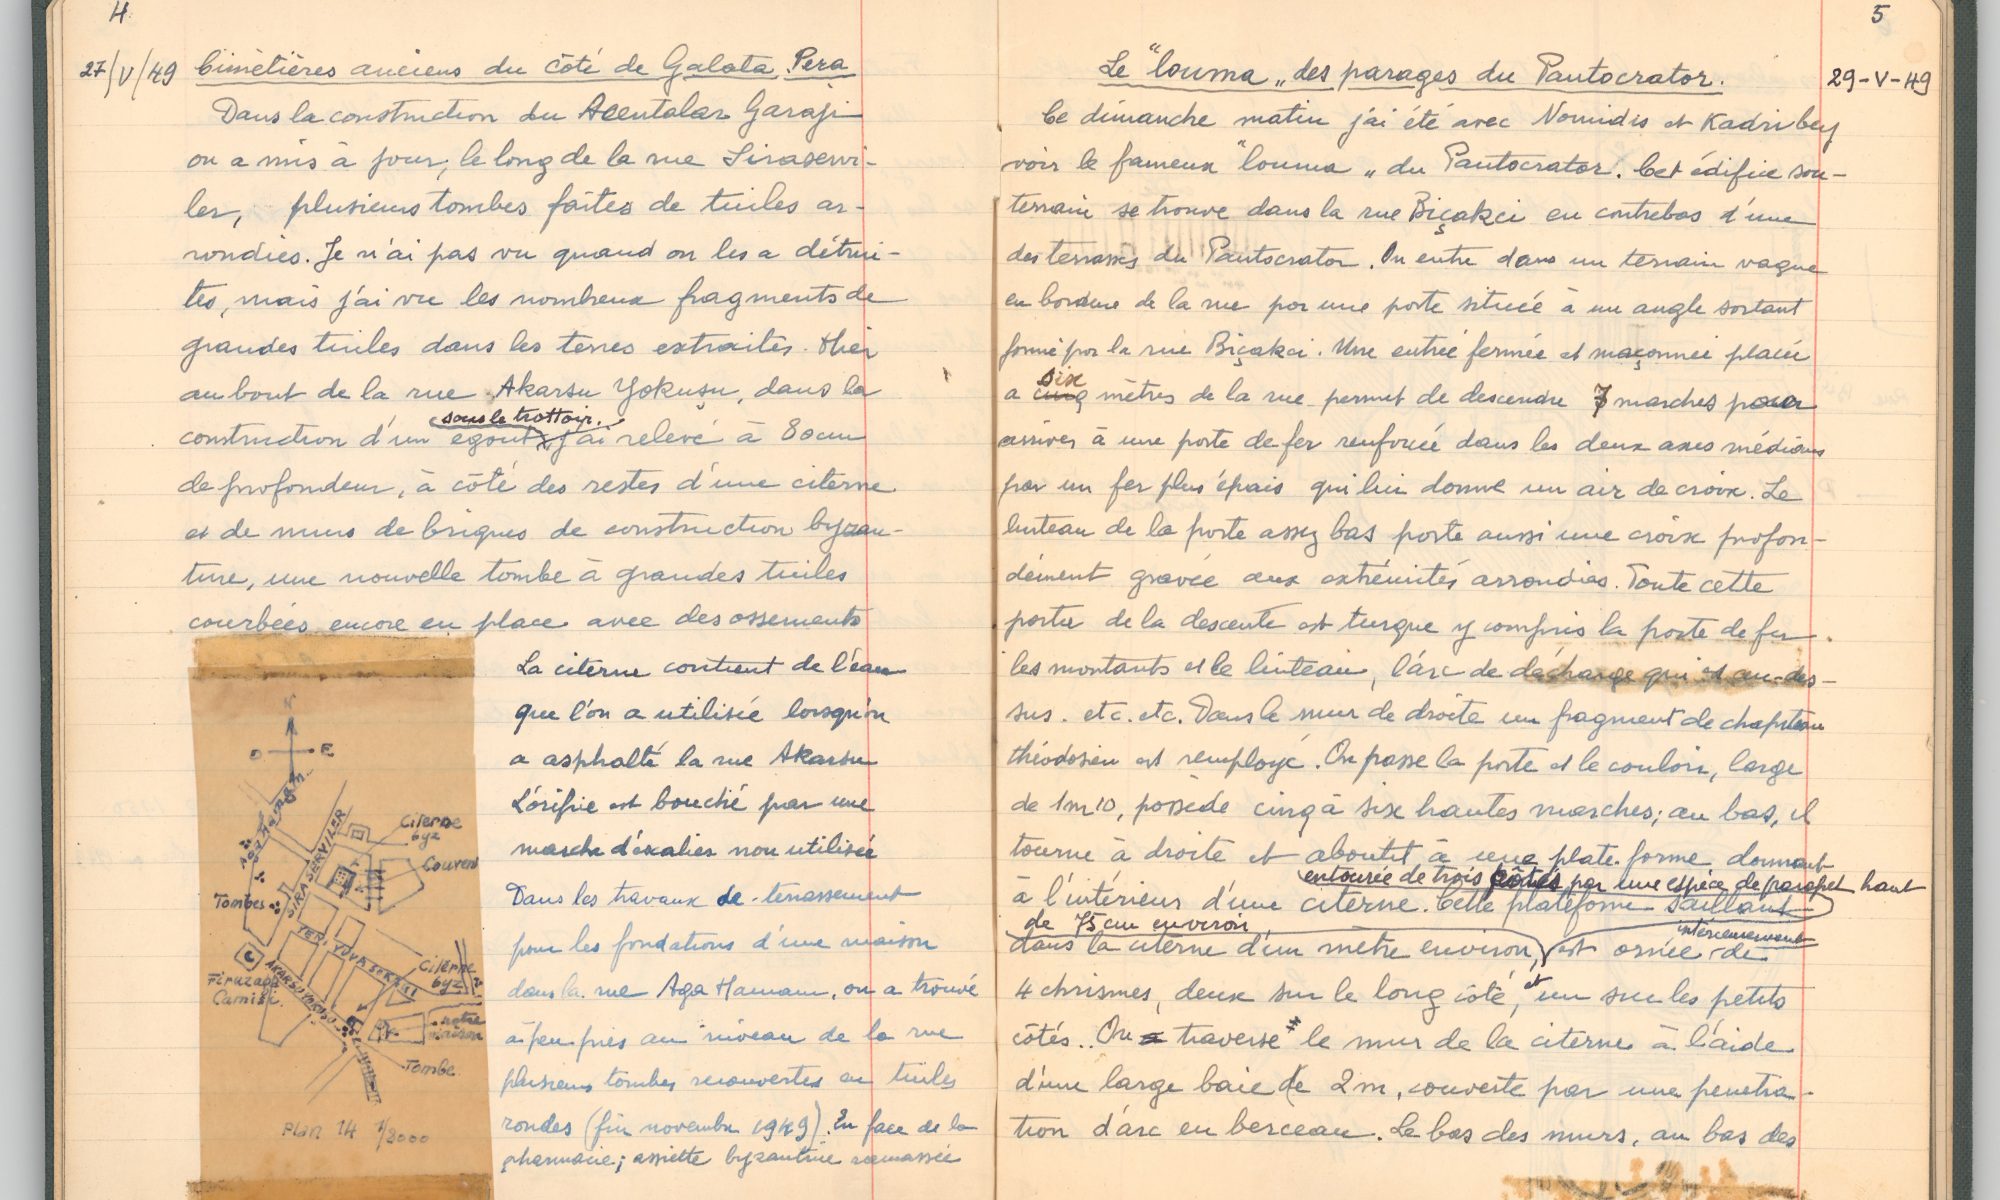 4
27/V/49 Cimetières anciens du côté de Galata. Pera
Dans la construction du Acentalar Garaji
on a mis à jour, le long de la rue Siraservi-
ler, plusieurs tombes faites de tuiles ar-
rondies. Je n'ai pas vu quand on les a détrui-
tes, mais j'ai vu les nombreux fragments de
grandes tuiles dans les terres extraites. Hier
au bout de la rue Akarsu Yokuşu, dans la
sous le trottoir.
construction d'un egout j'ai relevé à 80cm
de profondeur, à côté des restes d'une citerne
et de murs de briques de construction byzan-
tine, une nouvelle tombe à grandes tuiles
courbées encore en place avec des ossements
La citerne contient de l'eau
que l'on a utilisée lorsqu'on
a asphalté la rue Akarsu
L'orifie est bouché par une
marche d'escalier non utilisée
Dans les travaux de terrassement
pour les fondations d'une maison
dans la rue Aga Hamam, on a trouvé
à peu près au niveau de la rue
plusieurs tombes recouvertes en tuiles
rondes (fin novembre 1949). En face de la
pharmacie; assiette byzantine ramassée
N
O E
SIRASERVILER
Citerne
byz
Couvent
Tombes
YENI YUVA SOKAGI
AKARSU YOKUŞU
Firuzaga
Camisi.
Citerne
byz
notre
maison
Tombe
Plan 14 1/2000
5
Le "louma" des parages du Pantocrator. 29-V-49
Ce dimanche matin j'ai été avec Nomidis et Kadri bey
voir le fameux "louma" du Pantocrator. Cet édifice sou-
terrain se trouve dans la rue Biçakci en contrebas d'une
des terrasses du Pantocrator. On entre dans un terrain vague
en bordure de la rue par une porte située à un angle sortant
formé par la rue Biçakci. Une entrée fermée et maçonnée placée
six
a cinq mètres de la rue permet de descendre 7 marches pour
arriver à une porte de fer renforcée dans les deux axes médians
par un fer plus épais qui lui donne un air de croix. Le
linteau de la porte assez bas porte aussi une croix profon-
dément gravée aux extrémités arrondies. Toute cette
partie de la descente est turque y compris la porte de fer.
les montants et le linteau, l'arc de décharge qui est au-des-
sus. etc. etc. Dans le mur de droite un fragment de chapiteau
théodosien est remployé. On passe la porte et le couloir, large
de 1m10, possède cinq à six hautes marches; au bas, il
tourne à droite et aboutit à une plate-forme donnant
entourée de trois côtés par une espèce de parapet haut
à l'intérieur d'une citerne. Cette plateforme saillant
de 75 cm environ intérieurement
dans la citerne d'un mètre environ, est ornée de
4 chrismes, deux sur le long côté, et un sur les petits
côtés.. On traverse le mur de la citerne à l'aide
d'une large baie de 2m, couverte par une penetra-
tion d'arc en berceau. Le bas des murs, au bas des